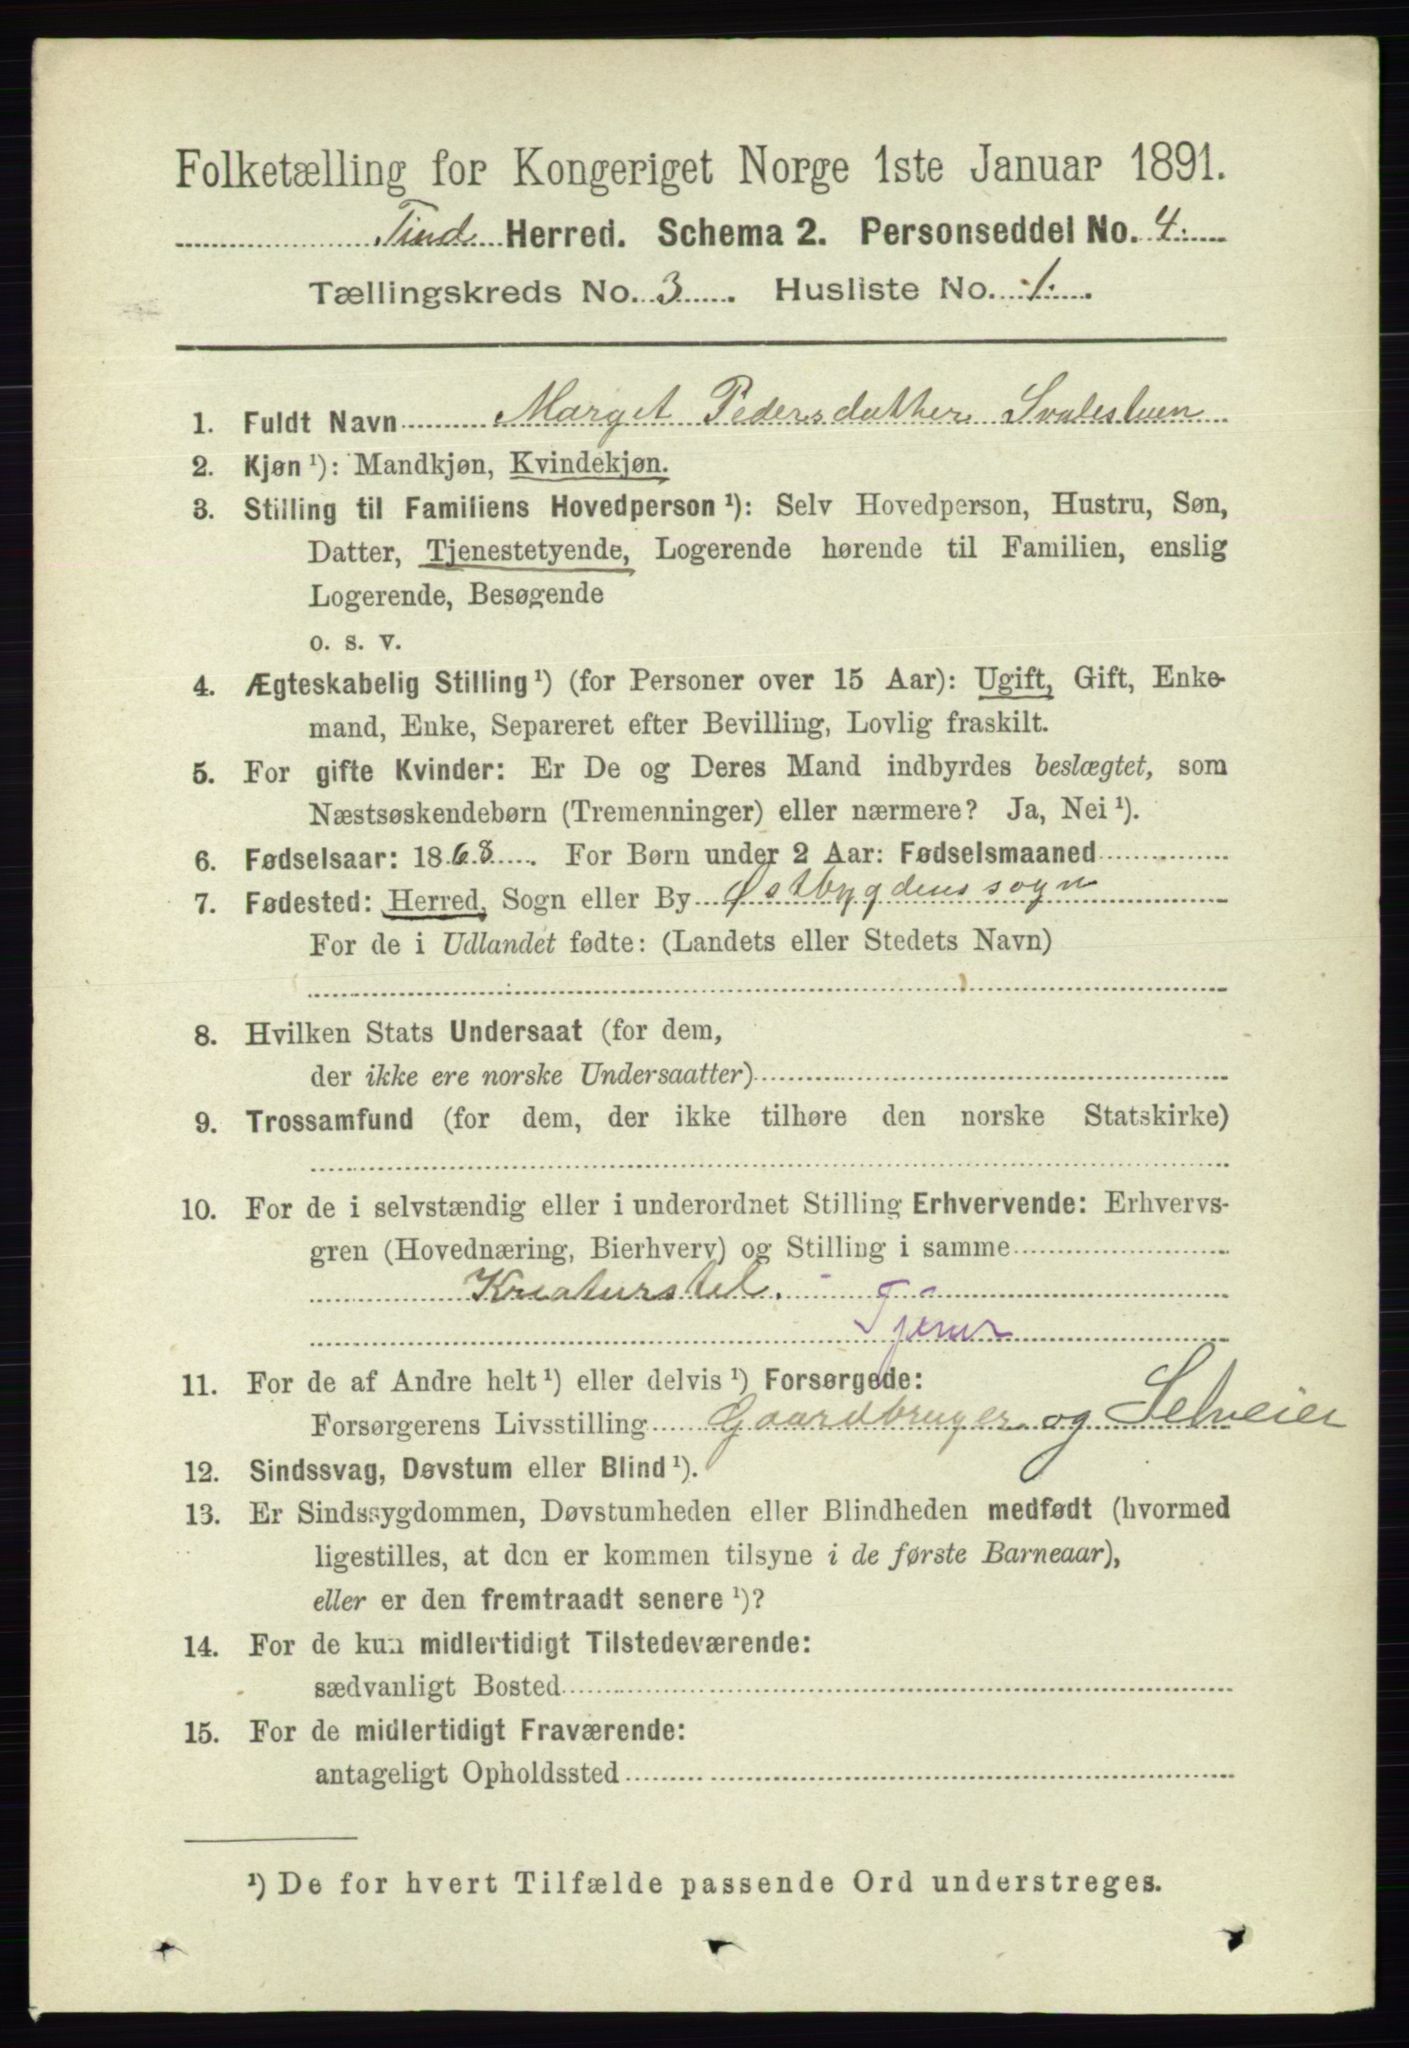 Folketælling for Kongeriget Norge 1ste Januar 1891.
Tind Herred. Schema 2. Personseddel No. 4.
Tællingskreds No. 3. Husliste No. 1.
1. Fuldt Navn Marget Pedersdatther Svalestuen
2. Kjøn ¹): Mandkjøn, Kvindekjøn.
3. Stilling til Familiens Hovedperson ¹): Selv Hovedperson, Hustru, Søn,
Datter, Tjenestetyende, Logerende hørende til Familien, enslig
Logerende, Besøgende
o. s. v.
4. Ægteskabelig Stilling ¹) (for Personer over 15 Aar): Ugift, Gift, Enke-
mand, Enke, Separeret efter Bevilling, Lovlig fraskilt.
5. For gifte Kvinder: Er De og Deres Mand indbyrdes beslægtet, som
Næstsøskendebørn (Tremenninger) eller nærmere? Ja, Nei ¹).
6. Fødselsaar: 1868. For Børn under 2 Aar: Fødselsmaaned
7. Fødested: Herred, Sogn eller By Østbygdens sogn
For de i Udlandet fødte: (Landets eller Stedets Navn)
8. Hvilken Stats Undersaat (for dem,
der ikke ere norske Undersaatter)
9. Trossamfund (for dem, der ikke tilhøre den norske Statskirke)
10. For de i selvstændig eller i underordnet Stilling Erhvervende: Erhvervs-
gren (Hovednæring, Bierhverv) og Stilling i samme
Kreaturstel.
11. For de af Andre helt ¹) eller delvis ¹) Forsørgede:
Forsørgerens Livsstilling Gaardbruger og Selveier
12. Sindssvag, Døvstum eller Blind ¹).
13. Er Sindssygdommen, Døvstumheden eller Blindheden medfødt (hvormed
ligestilles, at den er kommen tilsyne i de første Barneaar),
eller er den fremtraadt senere ¹)?
14. For de kun midlertidigt Tilstedeværende:
sædvanligt Bosted
15. For de midlertidigt Fraværende:
antageligt Opholdssted
¹) De for hvert Tilfælde passende Ord understreges.